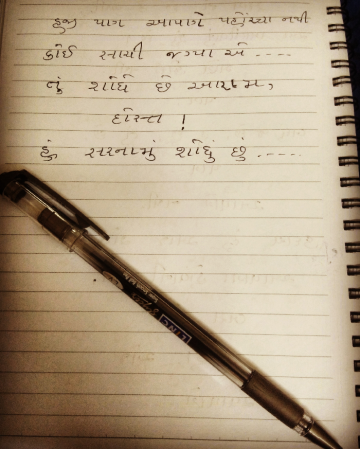 હજી પાગ આપણે પહોંચ્યા નથી
કોઈ સાચી જગ્યા એ ....
તું શોધે છે આરામ,
દોસ્ત !
હું સરનામું શોધું છું ....
LINC